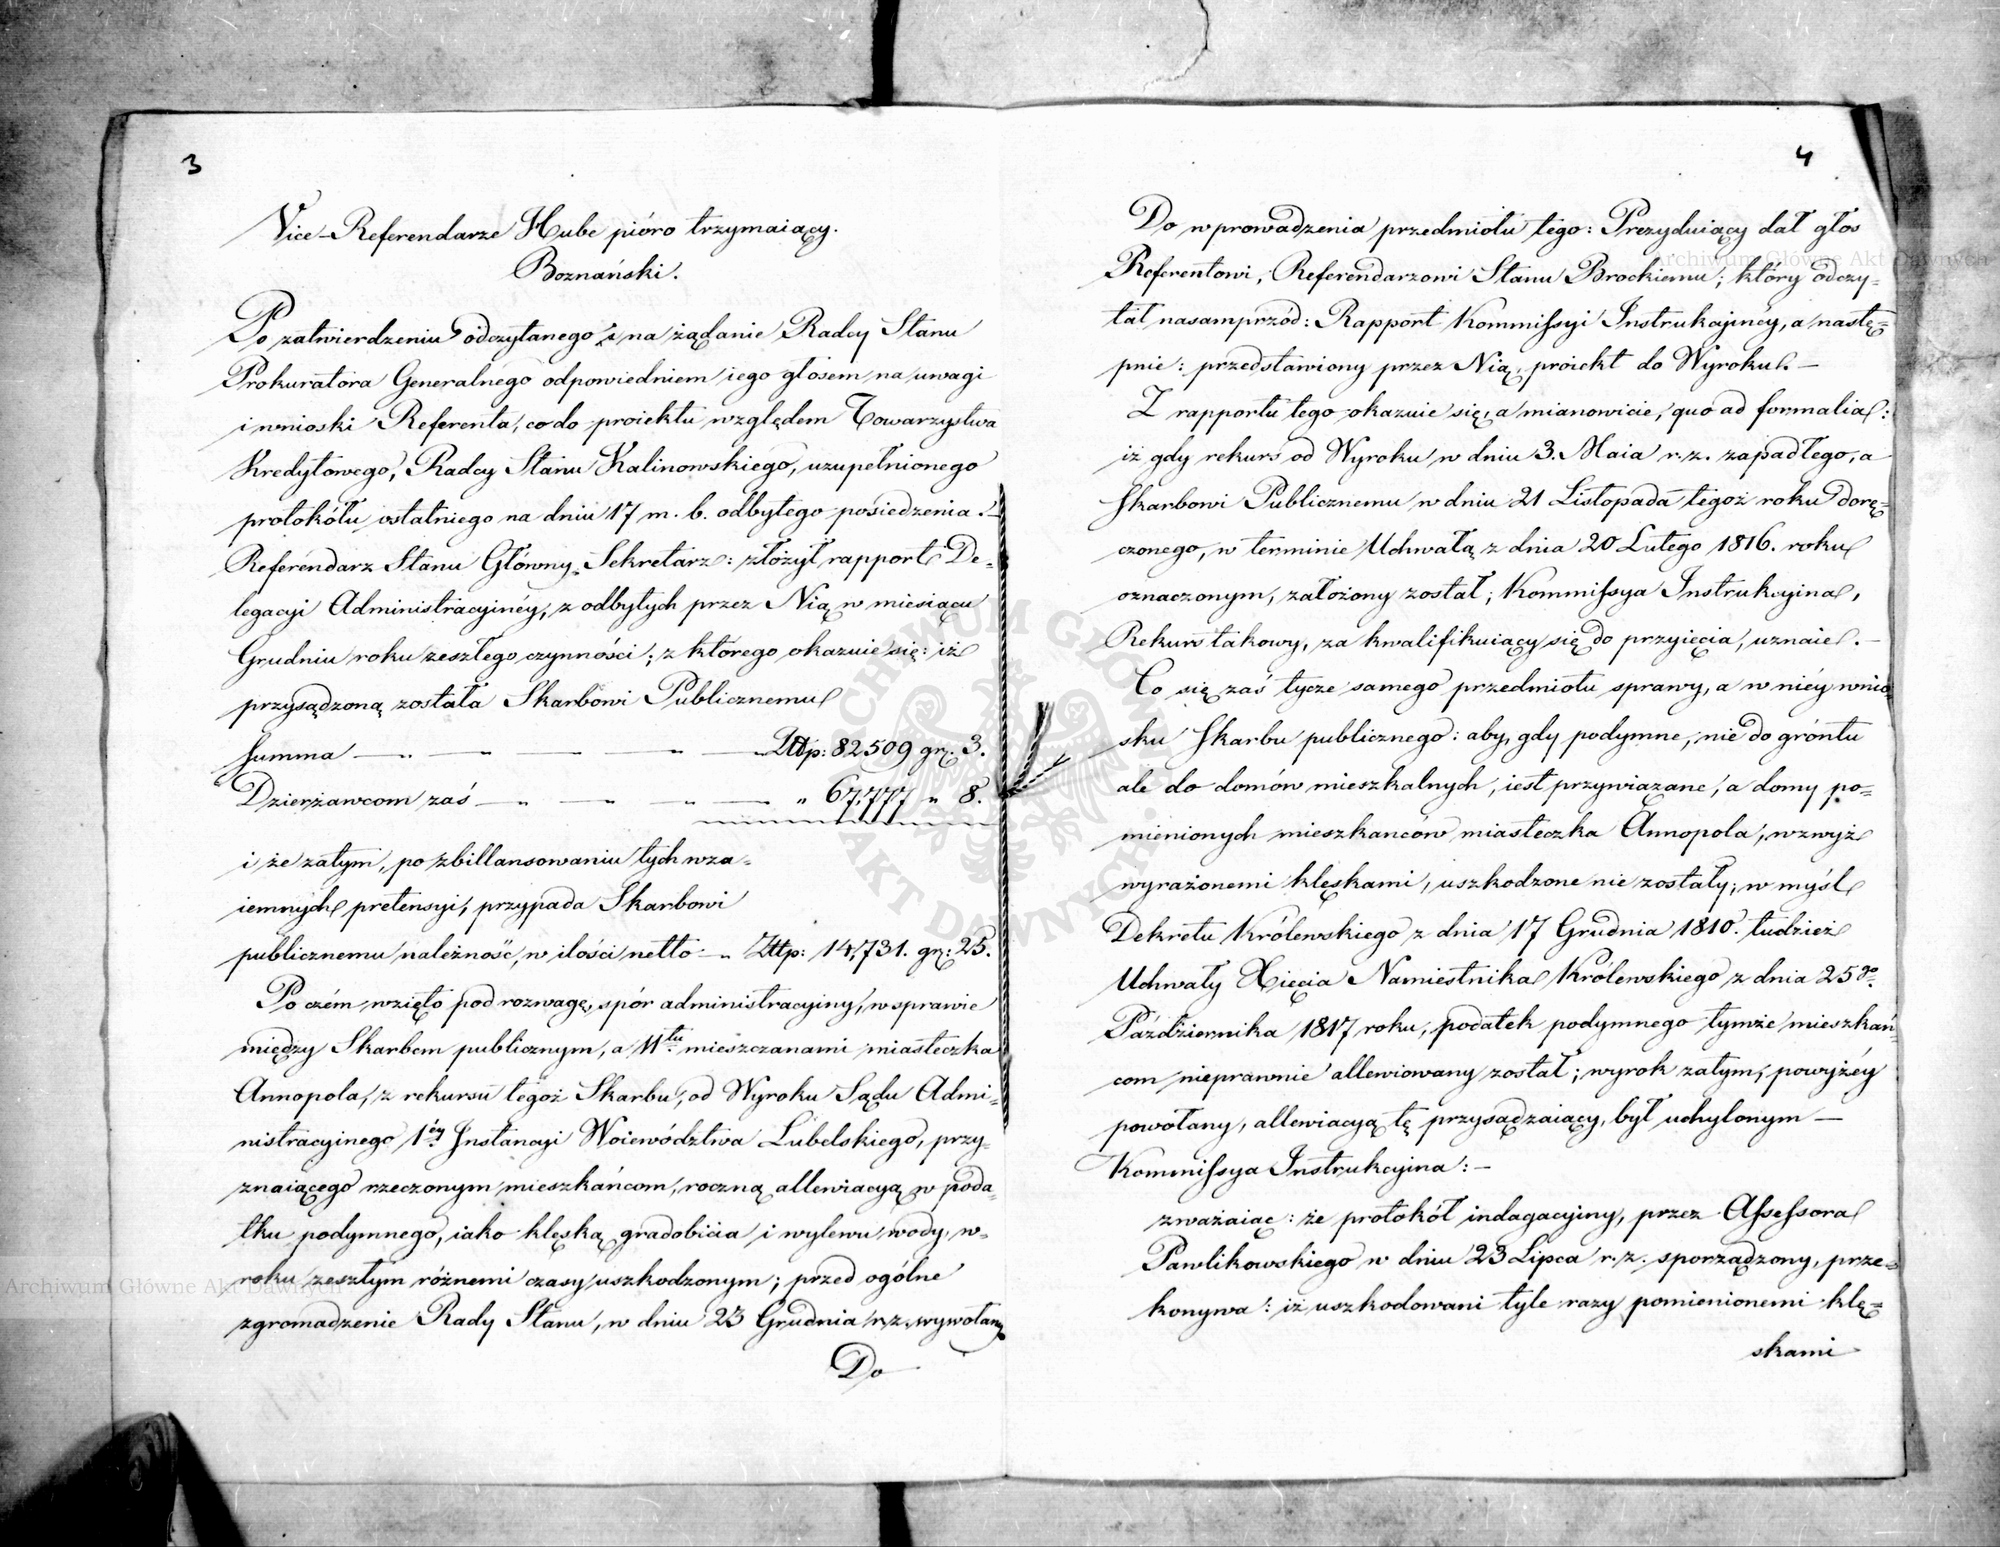 3
Vice-Referendarze Hube pióro trzymaiący.
Boznański.
Po zatwierdzeniu odczytanego i na żądanie Radcy Stanu
Prokuratora Generalnego odpowiedniem iego głosem na uwagi
i wnioski Referenta, co do proiektu względem Towarzystwa
Kredytowego, Radcy Stanu Kalinowskiego, uzupełnionego
protokółu ostatniego na dniu 17 m. b. odbytego posiedzenia. –
Referendarz Stanu Główny Sekretarz: złożył rapport De-
legacyi Administracyinéy, z odbytych przez Nią w miesiącu
Grudniu roku zeszłego czynności; z którego okazuie się: iż
przysądzoną została Skarbowi Publicznemu
Summa — „ — „ — „ — „ Złtp: 82509 gr. 3.
Dzierżawcom zaś — „ — „ — „ — „ 67,777 „ 8.
i że zatym, po zbillansowaniu tych wza-
iemnych pretensyi, przypada Skarbowi
publicznemu należność, w ilości netto – „ Złtp: 14,731. gr: 25.
Po czém wzięto pod rozwagę, spór administracyiny, w sprawie
między Skarbem publicznym, a 11tu mieszczanami miasteczka
Annopola, z rekursu tegoż Skarbu, od Wyroku Sądu Admi-
nistracyinego 1éy Instancyi Woiewództwa Lubelskiego, przy-
znaiącego rzeczonym mieszkańcom, roczną allewiacyą w poda-
tku podymnego, iako klęską gradobicia i wylewu wody, w-
roku zeszłym różnemi czasy uszkodzonym; przed ogólne
zgromadzenie Rady Stanu, w dniu 23 Grudnia r. z. wywołany
Do
4
Do wprowadzenia przedmiotu tego: Prezyduiący dał głos
Referentowi, Referendarzowi Stanu Brockiemu; który odczy-
tał nasamprzód: Rapport Kommissyi Instrukcyinéy, a nastę-
pnie: przedstawiony przez Nią, proiekt do Wyroku. –
Z rapportu tego okazuie się, a mianowicie, quo ad formalia:
iż gdy rekurs od Wyroku w dniu 3. Maia r. z. zapadłego, a
Skarbowi Publicznemu w dniu 21 Listopada tegoż roku dorę-
czonego, w terminie Uchwałą z dnia 20 Lutego 1816. roku
oznaczonym, założony został; Kommissya Instrukcyina,
Rekurs takowy, za kwalifikuiący się do przyięcia, uznaie. –
Co się zaś tycze samego przedmiotu sprawy, a w niéy wnio-
sku Skarbu publicznego: aby, gdy podymne, nie do gróntu
ale do domów mieszkalnych, iest przywiązane, a domy po-
mienionych mieszkanców miasteczka Annopola, wzwyż
wyrażonemi klęskami, uszkodzone nie zostały; w myśl
Dekretu Królewskiego z dnia 17 Grudnia 1810. tudzież
Uchwały Xięcia Namiestnika Królewskiego z dnia 25go
Października 1817 roku, podatek podymnego tymże mieszkań-
com nieprawnie allewiowany został; wyrok zatym, powyżéy
powołany, allewiacyą tę przysądzaiący, był uchylonym –
Kommissya Instrukcyina: –
zważaiąc: że protokół indagacyiny, przez Assessora
Pawlikowskiego w dniu 23 Lipca r. z. sporządzony, prze-
konywa: iż uszkodowani tyle razy pomienionemi klę-
skami
Archiwum Główne Akt Dawnych
Archiwum Główne Akt Dawnych
ARCHIWUM GŁÓWNE AKT DAWNYCH